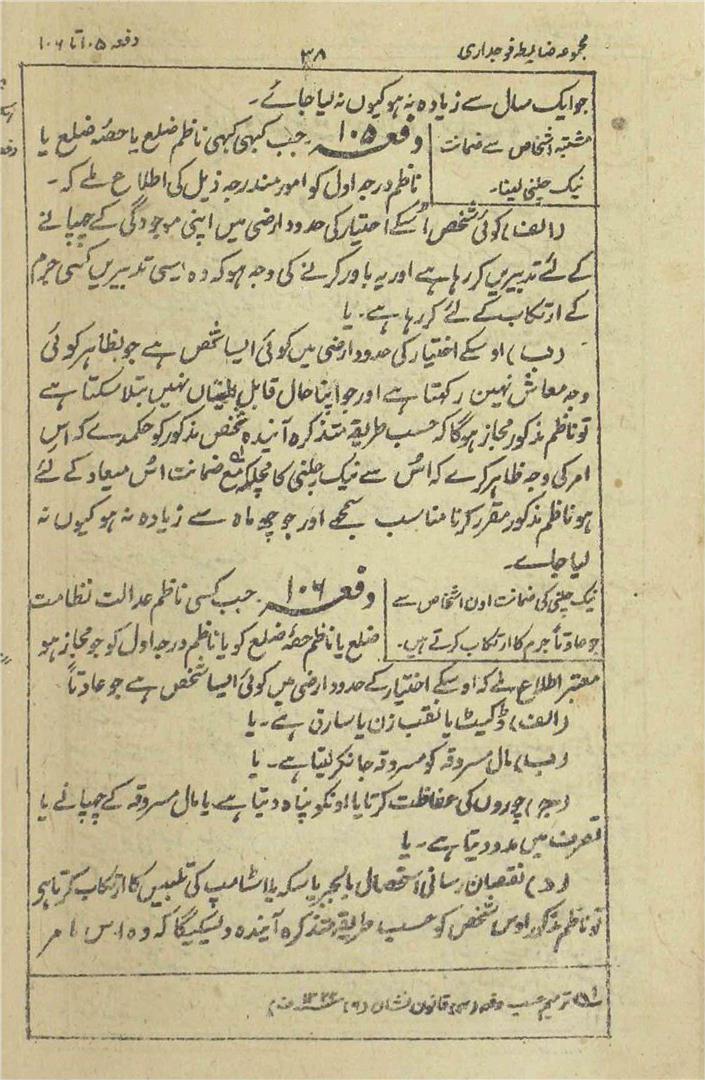 مجموعہ ضابطہ فوجداری
۳۸
دفعہ ۱۰۵ تا ۱۰۶
جو ایک سال سے زیادہ نہ ہو کیوں نہ لیا جائے۔
مشتبہ اشخاص سے ضمانت
نیک چلنی لینا۔
دفعہ ۱۰۵۔ جب کبھی کبھی ناظم ضلع یا حصۂ ضلع یا
ناظم درجہ اول کو امور مندرجہ ذیل کی اطلاع ملے کہ۔
(الف) کوئی شخص اُسکے اختیار کی حدود ارضی میں اپنی موجودگی کے چھپانے
کے لئے تدبیریں کر رہا ہے اور یہ باور کرنے کی وجہ ہو کہ وہ ایسی تدبیریں کسی جرم
کے ارتکاب کے لئے کر رہا ہے۔ یا
(ب) اوسکے اختیار کی حدود ارضی میں کوئی ایسا شخص ہے جو بظاہر کوئی
وجہ معاش نہین رکھتا ہے اور جو اپنا حال قابل اطمینان نہیں بتلا سکتا ہے
تو ناظم مذکور مجاز ہوگا کہ حسب طریقہ متذکرہ آیندہ شخص مذکور کو حکم دے کہ اس
امر کی وجہ ظاہر کرے کہ اُس سے نیک چلنی کا مچلکہ مع ضمانت اُس میعاد کے لئے
ہو ناظم مذکور مقرر کرنا مناسب سمجھے اور جو چھ ماہ سے زیادہ نہ ہو کیوں نہ
لیا جاے۔
نیک چلنی کی ضمانت اون اشخاص سے
جو عادتاً جرم کا ارتکاب کرتے ہیں۔
دفعہ ۱۰۶۔ جب کسی ناظم عدالت نظامت
ضلع یا ناظم حصۂ ضلع کو یا ناظم درجہ اول کو جو مجاز ہو
معتبر اطلاع ملے کہ اوسکے اختیار کے حدود ارضی میں کوئی ایسا شخص ہے جو عادتاً
(الف) ڈکیت یا نقب زن یا سارق ہے۔ یا
(ب) مال مسروقہ کو مسروقہ جانکر لیتا ہے۔ یا
(ج) چوروں کی حفاظت کرتا یا اونکو پناہ دیتا ہے یا مال مسروقہ کے چھپانے یا
تصرف میں مدد دیتا ہے۔ یا
(د) نقصان رسانی استحصال بالجبر یا سکہ یا اسٹامپ کی تلبیس کا ارتکاب کرتا ہو
تو ناظم مذکور اوس شخص کو حسب طریقہ متذکرہ آیندہ دیسکیگا کہ وہ اس امر
ترمیم حسب دفعہ قانون نشان